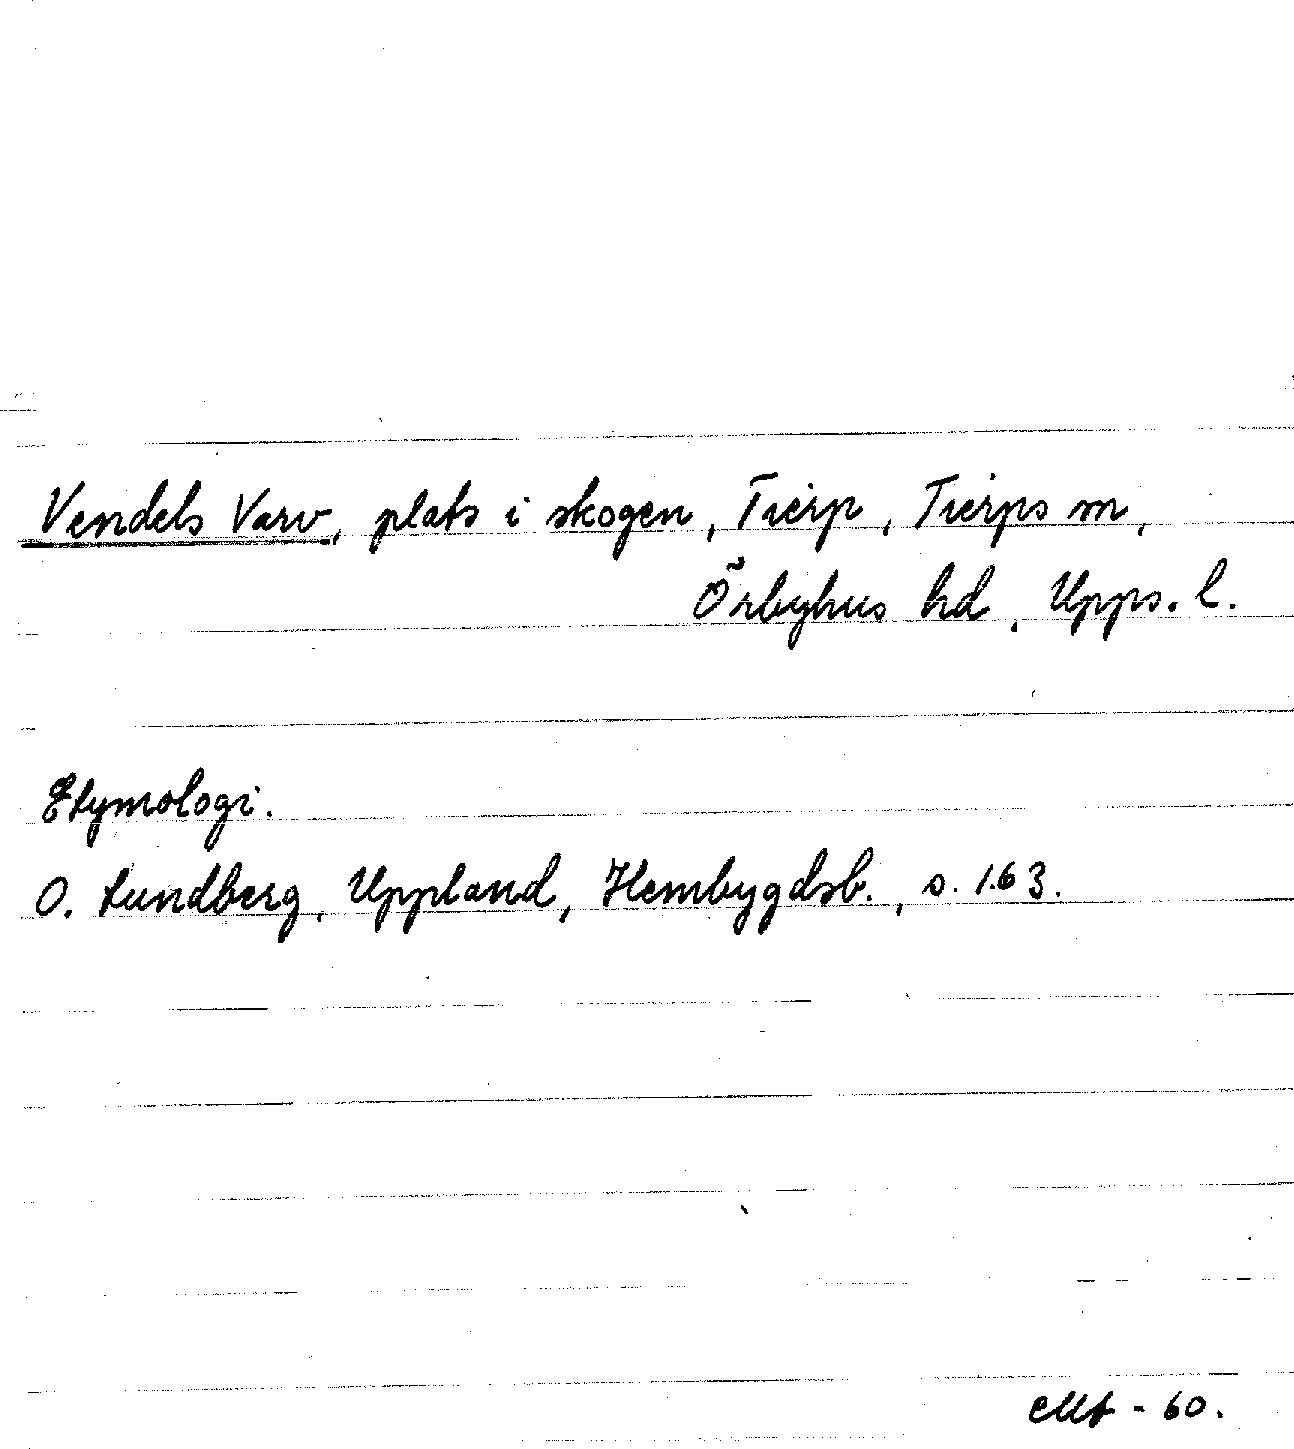 Vendels Varv, plats i skogen, Tierp, Tierps sn,
Örbyhus hd, Upps. l.
Etymologi.
O. Lundberg, Uppland, Hembygdsb., s. 163.
- 60.